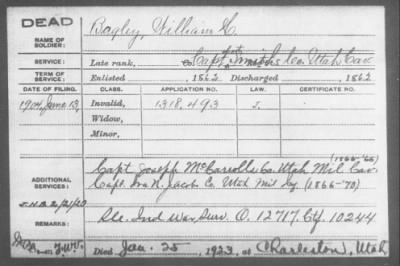 DEAD
NAME OF SOLDIER: Bagley, William H.
SERVICE: Late rank, Co. Capt. Smith's Co. Utah Cav.
TERM OF SERVICE: Enlisted 1862 Discharged 1862
DATE OF FILING. CLASS. APPLICATION NO. LAW. CERTIFICATE NO.
1904, June 13, Invalid, 1318.493 S.
Widow,
Minor,
(1866-'66)
ADDITIONAL SERVICES: Capt. Joseph McCarrolls Co. Utah Mil Cav.
Capt. Ira N. Jacob Co. Utah Mil Inf (1866-70)
S.H.B. 2/21/20
REMARKS: See Ind War Surv. O. 12717, Ctf 10244
Died Jan. 25, 1923, at Charleston, Utah